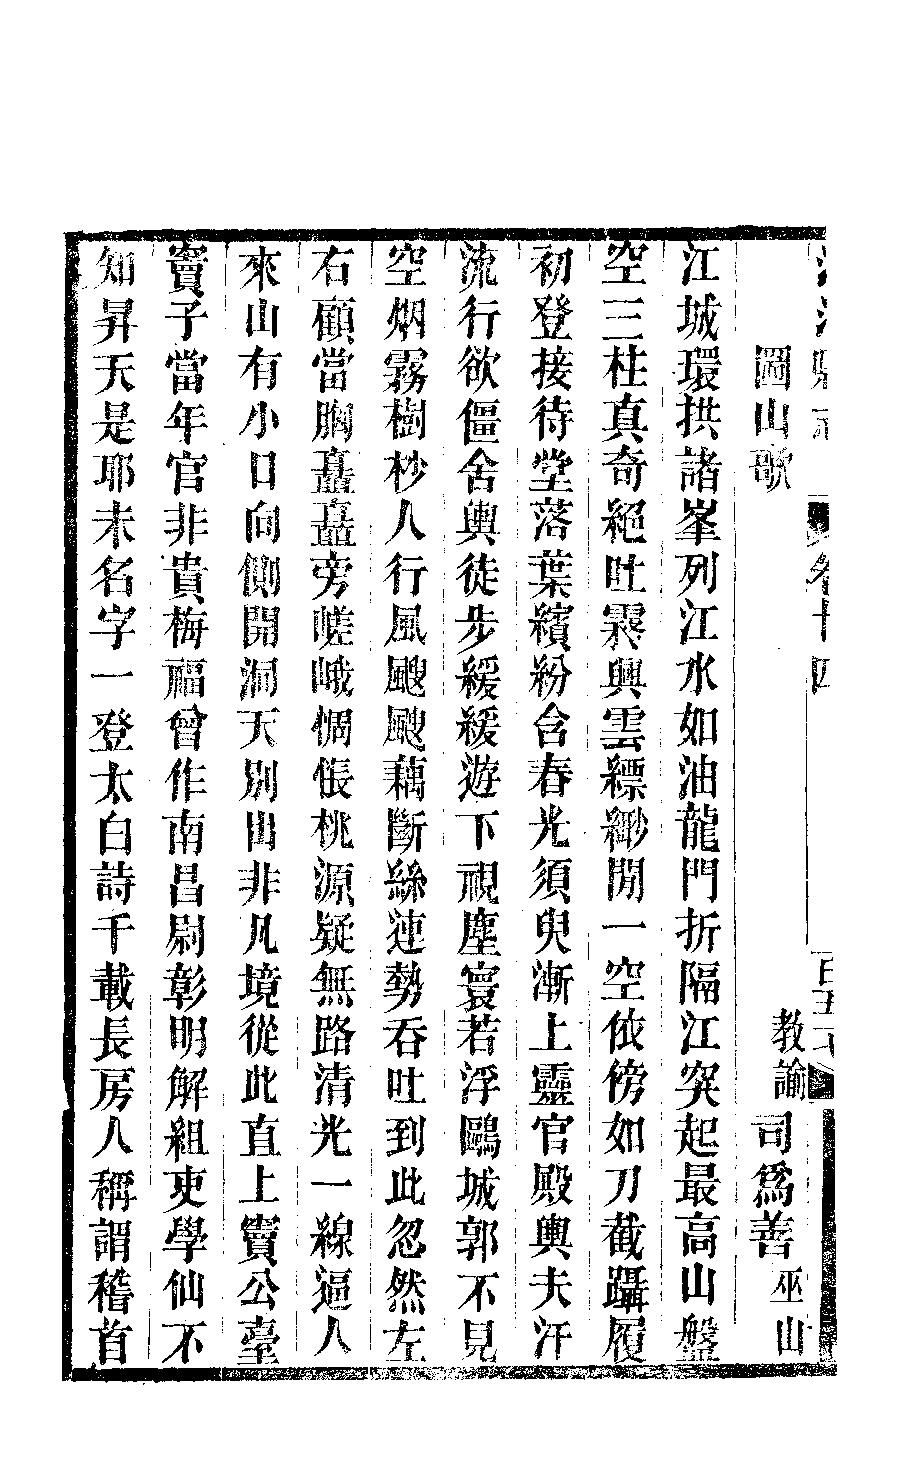 卷十四
圌山歌 教諭 司爲善 巫山
江城環拱諸峯列江水如油龍門折隔江突起最高山盤
空三柱真奇絕吐霧興雲縹緲間一空依傍如刀截躡履
初登接待堂落葉繽紛含春光須臾漸上靈官殿輿夫汗
流行欲僵舍輿徒步緩緩遊下視塵寰若浮鷗城郭不見
空烟霧樹杪人行風颼颼藕斷絲連勢吞吐到此忽然左
右顧當胸矗矗旁嵯峨惆悵桃源疑無路清光一線逼人
來山有小口向側開洞天別出非凡境從此直上竇公臺
竇子當年官非貴梅福曾作南昌尉彰明解組吏學仙不
知昇天是耶未名字一登太白詩千載長房人稱謂稽首